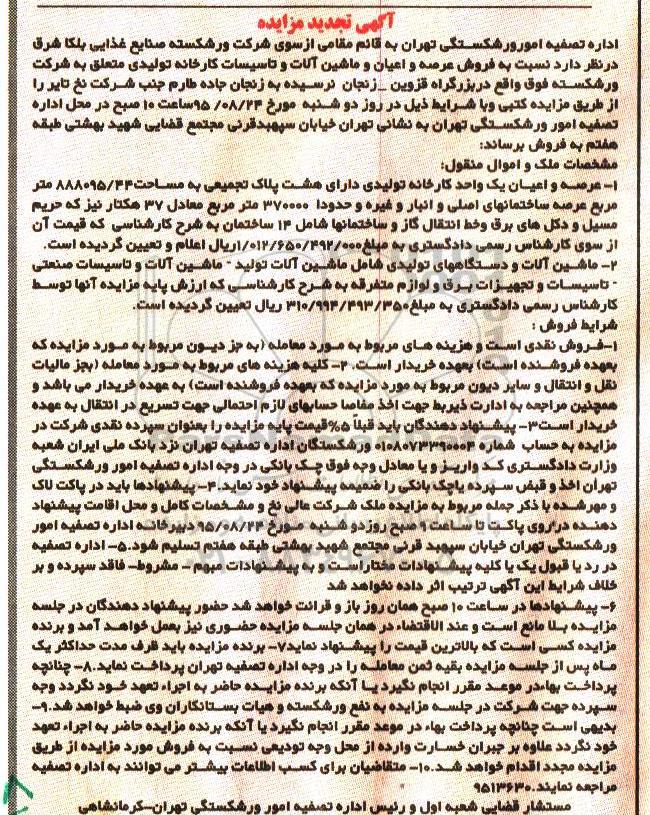 آگهی تجدید مزایده
اداره تصفیه امورورشکستگی تهران به قائم مقامی ازسوی شرکت ورشکسته صنایع غذایی یلکا شرق
درنظر دارد نسبت به فروش عرصه و اعیان و ماشین آلات و تاسیسات کارخانه تولیدی متعلق به شرکت
ورشکسته فوق واقع دربزرگراه قزوین _زنجان نرسیده به زنجان جاده طارم جنب شرکت نخ تایر را
از طریق مزایده کتبی وبا شرایط ذیل در روز دو شنبه مورخ ۹۵/۰۸/۲۴ساعت ۱۰ صبح در محل اداره
تصفیه امور ورشکستگی تهران به نشانی تهران خیابان سپهبدقرنی مجتمع قضایی شهید بهشتی طبقه
هفتم به فروش برساند:
مشخصات ملک و اموال منقول:
۱- عرصه و اعیان یک واحد کارخانه تولیدی دارای هشت پلاک تجمیعی به مساحت۸۸۸۰۹۵/۴۴ متر
مربع عرصه ساختمانهای اصلی و انبار و غیره و حدودا ۳۷۰۰۰۰ متر مربع معادل ۳۷ هکتار نیز که حریم
مسیل و دکل های برق وخط انتقال گاز و ساختمانها شامل ۱۴ ساختمان به شرح کارشناسی که قیمت آن
از سوی کارشناس رسمی دادگستری به مبلغ۱/۰۱۲/۶۵۰/۴۹۲/۰۰۰ریال اعلام و تعیین گردیده است.
۲- ماشین آلات و دستگاههای تولیدی شامل ماشین آلات تولید - ماشین آلات و تاسیسات صنعتی
- تاسیسات و تجهیزات برق و لوازم متفرقه به شرح کارشناسی که ارزش پایه مزایده آنها توسط
کارشناس رسمی دادگستری به مبلغ۳۱۰/۹۹۴/۴۹۳/۳۵۰ ریال تعیین گردیده است.
شرایط فروش :
۱-فروش نقدی است و هزینه های مربوط به مورد معامله (به جز دیون مربوط به مورد مزایده که
بعهده فروشنده است) بعهده خریدار است. ۲- کلیه هزینه های مربوط به مورد معامله (بجز مالیات
نقل و انتقال و سایر دیون مربوط به مورد مزایده که بعهده فروشنده است) به عهده خریدار می باشد و
همچنین مراجعه به ادارت ذیربط جهت اخذ مفاصا حسابهای لازم احتمالی جهت تسریع در انتقال به عهده
خریدار است۳- پیشنهاد دهندگان باید قبلاً ۵%قیمت پایه مزایده را بعنوان سپرده نقدی شرکت در
مزایده به حساب شماره ورشکستگان اداره تصفیه تهران نزد بانک ملی ایران شعبه
وزارت دادگستری کد واریز و یا معادل وجه فوق چک بانکی در وجه اداره تصفیه امور ورشکستگی
تهران اخذ و قبض سپرده یاچک بانکی را ضمیمه پیشنهاد خود نماید.۴- پیشنهادها باید در پاکت لاک
و مهرشده با ذکر جمله مربوط به مزایده ملک شرکت عالی نخ و مشخصات کامل و محل اقامت پیشنهاد
دهنده در/روی پاکت تا ساعت ۹صبح روزدو شنبه مورخ ۹۵/۰۸/۲۴ دبیرخانه اداره تصفیه امور
ورشکستگی تهران خیابان سپهبد قرنی مجتمع شهید بهشتی طبقه هفتم تسلیم شود.۵- اداره تصفیه
در رد یا قبول یک یا کلیه پیشنهادات مختاراست و به پیشنهادات مبهم - مشروط- فاقد سپرده و بر
خلاف شرایط این آگهی ترتیب اثر داده نخواهد شد
۶- پیشنهادها در ساعت ۱۰ صبح همان روز باز و قرائت خواهد شد حضور پیشنهاد دهندگان در جلسه
مزایده بلا مانع است و عند الاقتضاء در همان جلسه مزایده حضوری نیز بعمل خواهد آمد و برنده
مزایده کسی است که بالاترین قیمت را پیشنهاد نماید۷- برنده مزایده باید ظرف مدت حداکثر یک
ماه پس از جلسه مزایده بقیه ثمن معامله را در وجه اداره تصفیه تهران پرداخت نماید.۸- چنانچه
پرداخت بهاءدر موعد مقرر انجام نگیرد یا آنکه برنده مزایده حاضر به اجراء تعهد خود نگردد وجه
سپرده جهت شرکت در جلسه مزایده به نفع ورشکسته و هیات بستانکاران وی ضبط خواهد شد.۹-
بدیهی است چنانچه پرداخت بهاء در موعد مقرر انجام نگیرد یا آنکه برنده مزایده حاضر به اجراء تعهد
خود نگردد علاوه بر جبران خسارت وارده از محل وجه تودیعی نسبت به فروش مورد مزایده از طریق
مزایده مجدد اقدام خواهد شد.۱۰- متقاضیان برای کسب اطلاعات بیشتر می توانند به اداره تصفیه
مراجعه نمایند.۹۵۱۳۶۳۰
مستشار قضایی شعبه اول و رئیس اداره تصفیه امور ورشکستگی تهران-کرمانشاهی